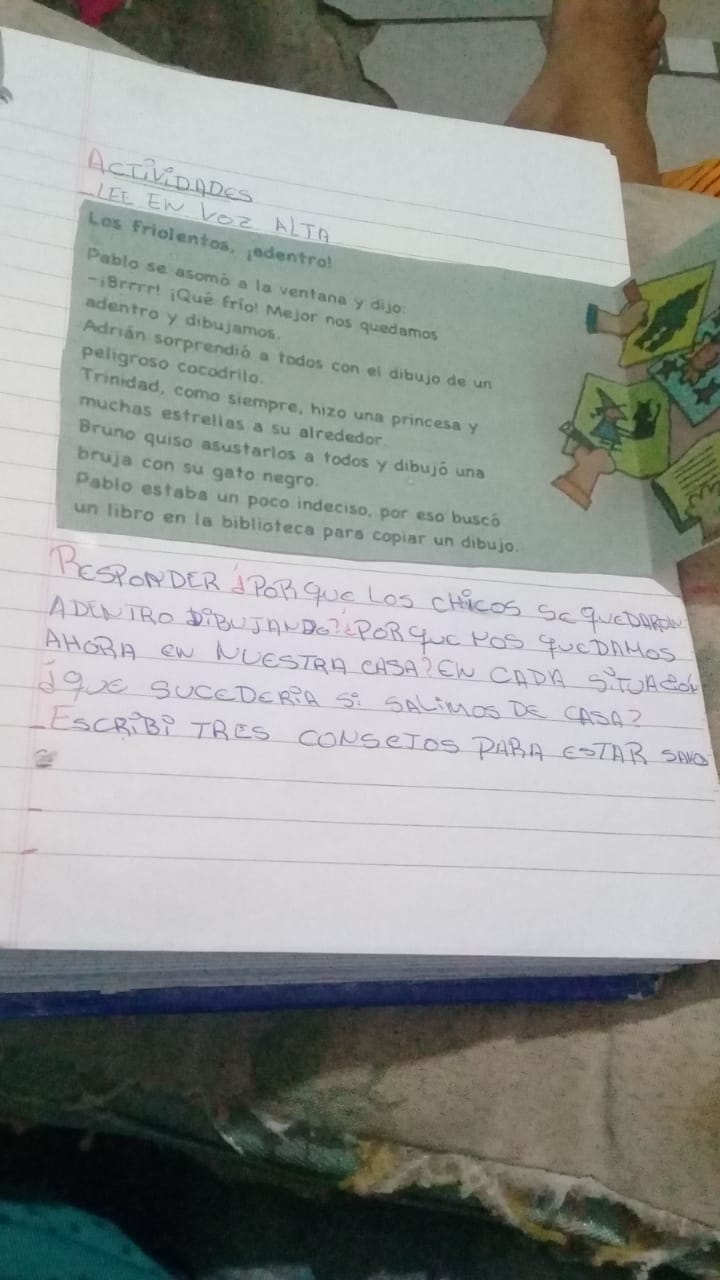 ACTIVIDADES
- LEE EN VOZ ALTA
Los friolentos, ¡adentro!
Pablo se asomó a la ventana y dijo:
-¡Brrrr! ¡Qué frío! Mejor nos quedamos
adentro y dibujamos.
Adrián sorprendió a todos con el dibujo de un
peligroso cocodrilo.
Trinidad, como siempre, hizo una princesa y
muchas estrellas a su alrededor.
Bruno quiso asustarlos a todos y dibujó una
bruja con su gato negro.
Pablo estaba un poco indeciso, por eso buscó
un libro en la biblioteca para copiar un dibujo.
RESPONDER ¿POR QUE LOS CHICOS SE QUEDARON
ADENTRO DIBUJANDO? ¿POR QUE NOS QUEDAMOS
AHORA EN NUESTRA CASA? EN CADA
¿QUE SUCEDERIA SI SALIMOS DE CASA?
- ESCRIBI TRES CONSEJOS PARA ESTAR SANO